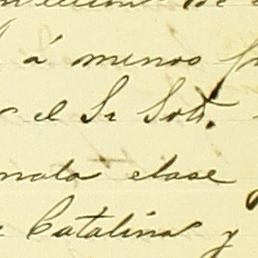 á menos
el Sr Soto.
mala clase
Catalina y